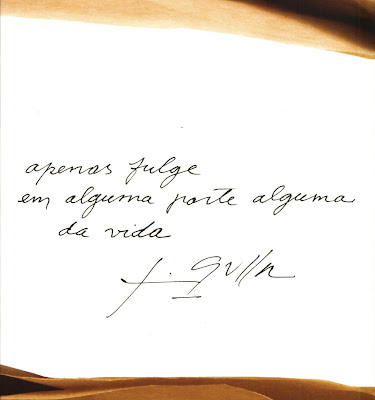 apenas fulge
em alguma parte alguma
da vida
f. Gullar